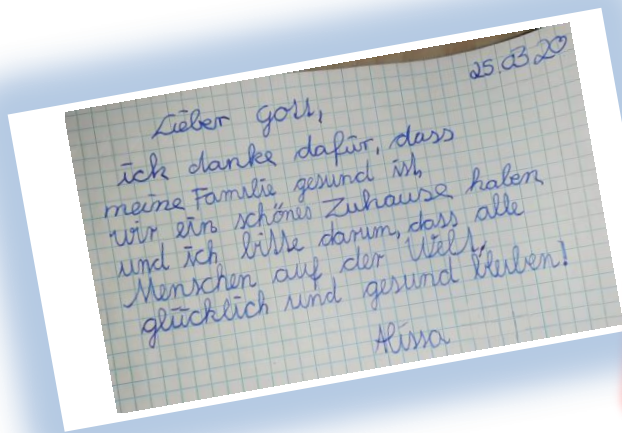 25.03.20
Lieber Gott,
ich danke dafür, dass
meine Familie gesund ist,
wir ein schönes Zuhause haben
und ich bitte darum, dass alle
Menschen auf der Welt
glücklich und gesund bleiben!
Alissa